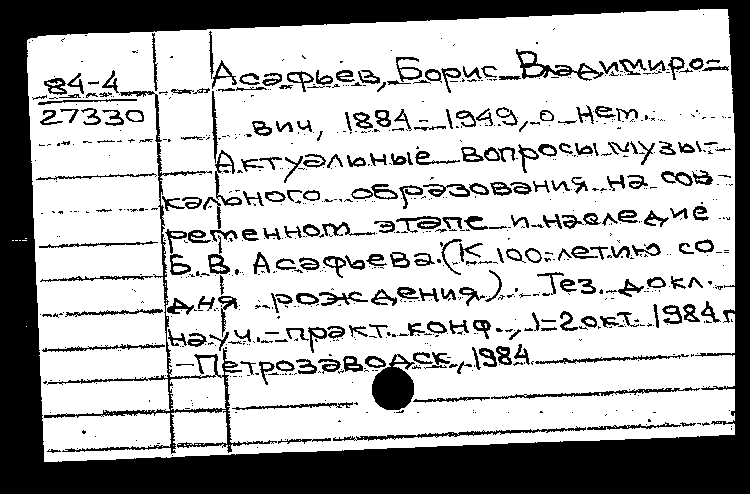 84-4
27330
Асафьев, Борис Владимиро-
вич, 1884-1949, о нем.
Актуальные вопросы музы-
кального образования на сов-
ременном этапе и наследие
Б.В. Асафьева. (К 100-летию со
дня рождения). Тез. докл.
науч.-практ. конф., 1-2 окт. 1984 г
-Петрозаводск, 1984